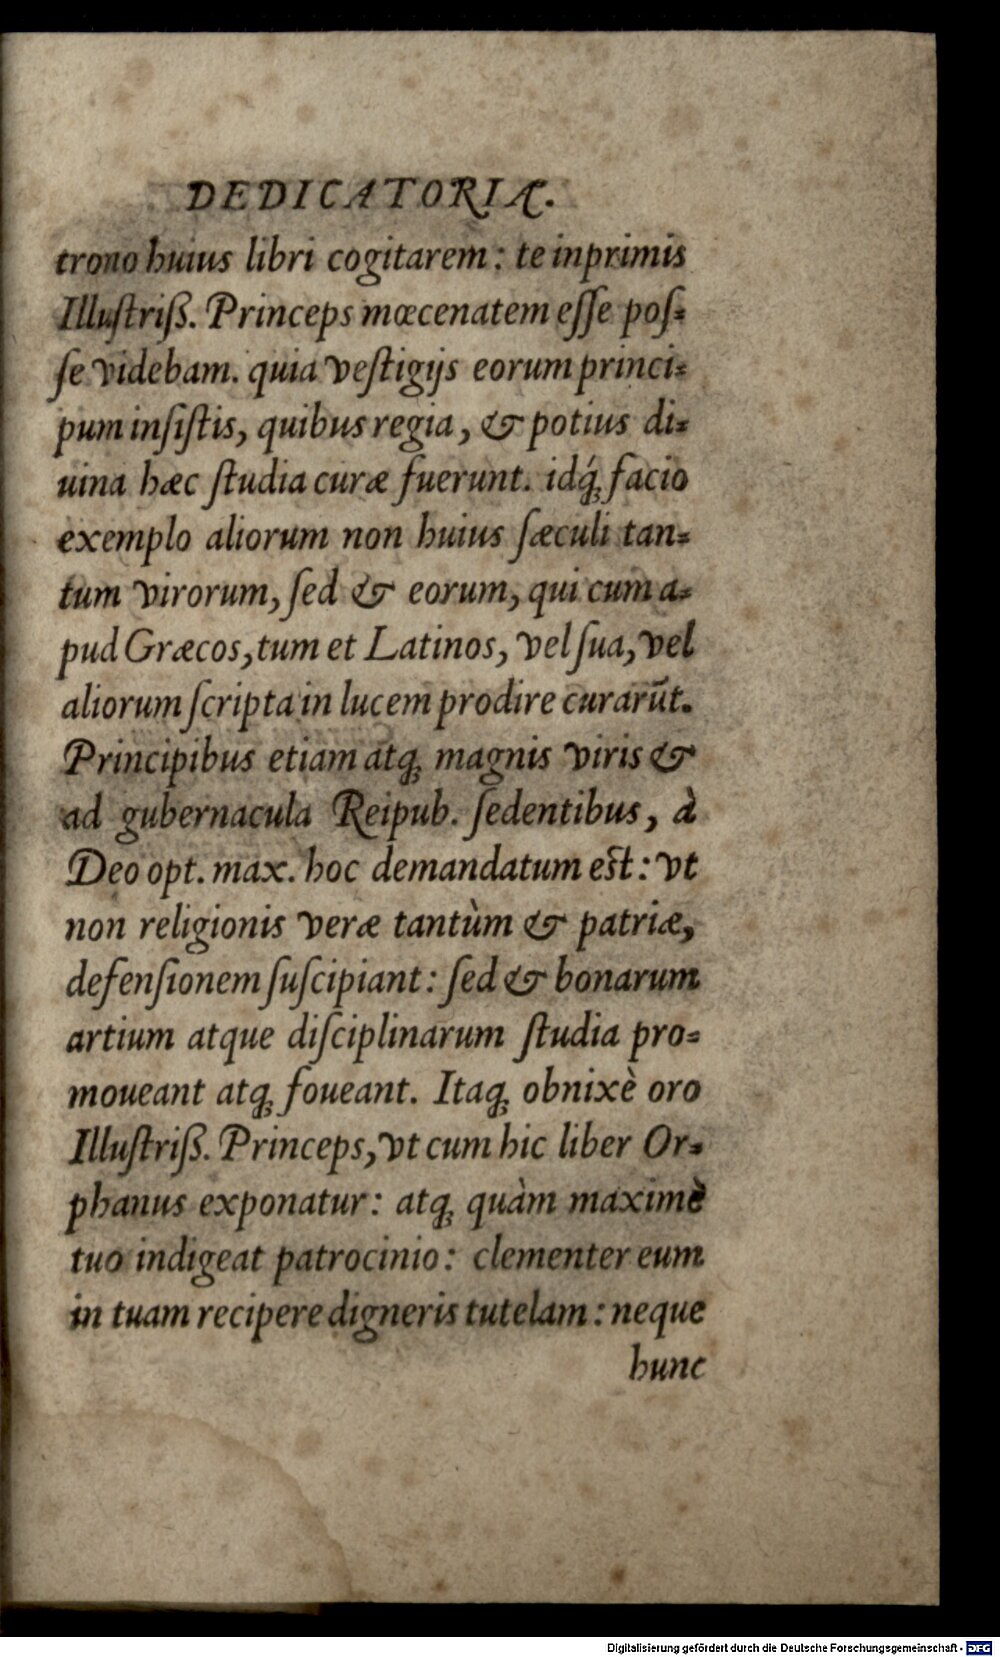 DEDICATORIÆ.
trono huius libri cogitarem: te inprimis
Illuſtriß. Princeps mœcenatem eſſe poſ-
ſe videbam. quia veſtigijs eorum princi-
pum inſiſtis, quibus regia, & potius di-
uina hæc ſtudia curæ fuerunt. idq́; facio
exemplo aliorum non huius ſæculi tan-
tum virorum, ſed & eorum, qui cum a-
pud Græcos, tum et Latinos, vel ſua, vel
aliorum ſcripta in lucem prodire curarūt.
Principibus etiam atq; magnis viris &
ad gubernacula Reipub. ſedentibus, à
Deo opt. max. hoc demandatum eſt: vt
non religionis veræ tantùm & patriæ,
defenſionem ſuſcipiant: ſed & bonarum
artium atque diſciplinarum ſtudia pro-
moueant atq; foueant. Itaq; obnixè oro
Illuſtriß. Princeps, vt cum hic liber Or-
phanus exponatur: atq; quàm maximè
tuo indigeat patrocinio: clementer eum
in tuam recipere digneris tutelam: neque
hunc
Digitalisierung gefördert durch die Deutsche Forschungsgemeinschaft - DFG